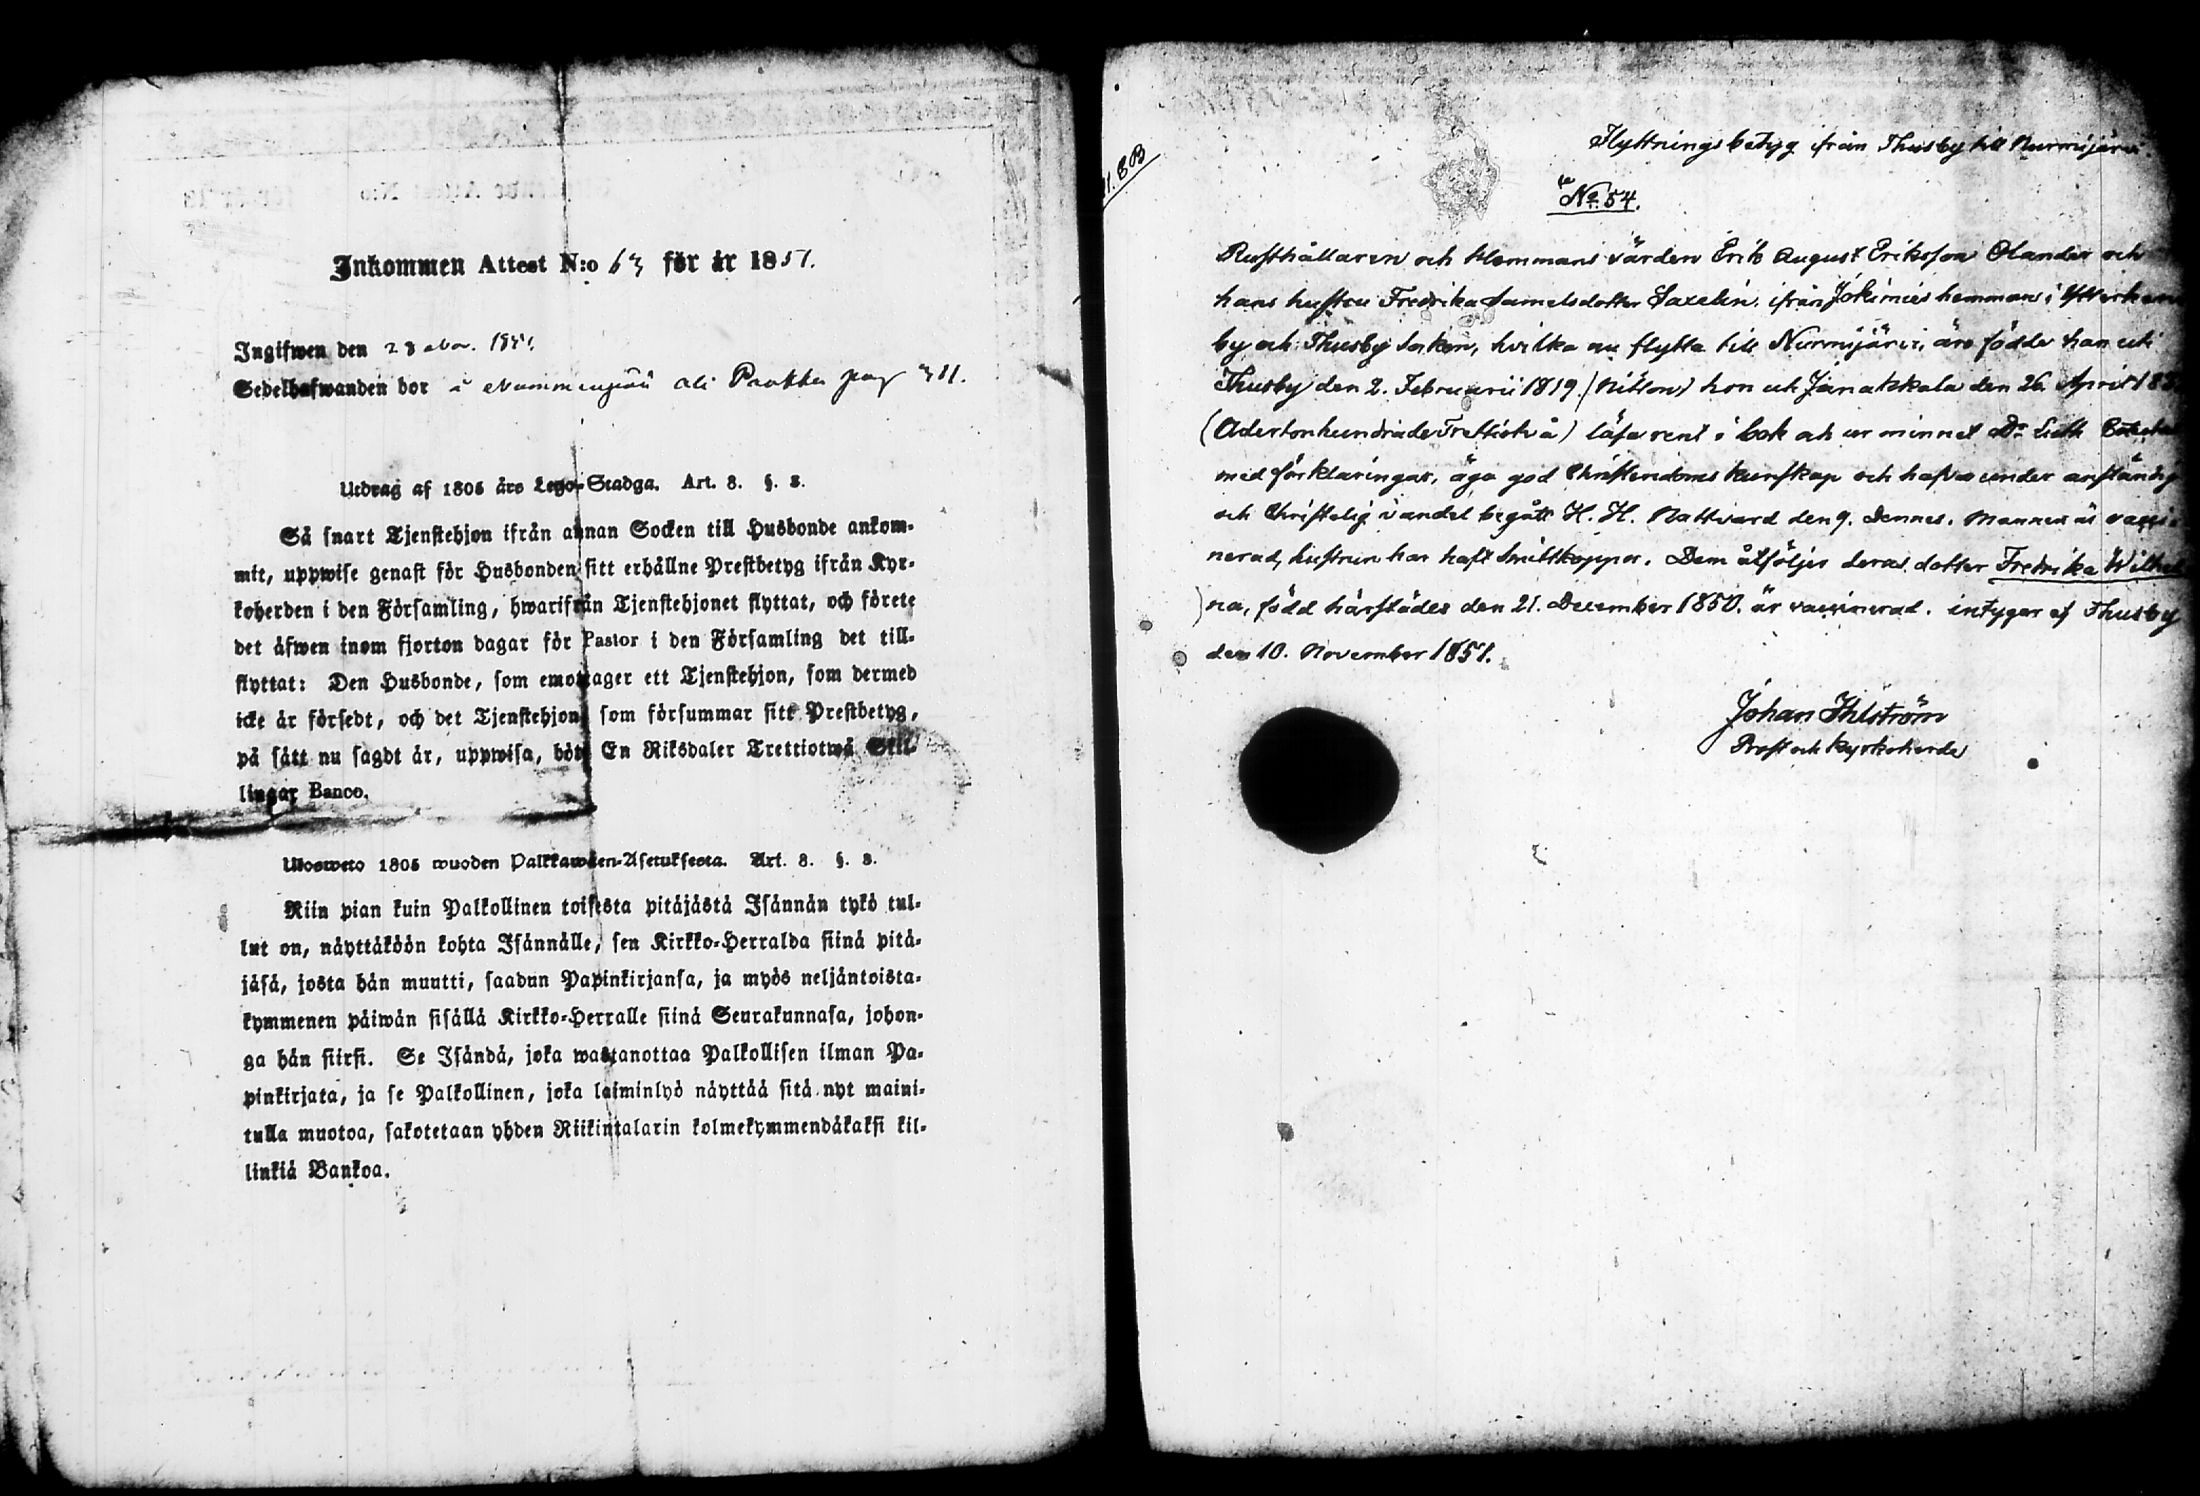 Inkommen Attest N:o 63 för år 1851.
Ingifwen den 28 Nov. 1851.
Sedelhafwanden bor i Nummenpää ali Paukku pag 311.
Utdrag af 1805 års Lego-Stadga. Art. 3. §. 3.
Så snart Tjenstehjon ifrån annan Socken till Husbonde ankom-
mit, uppwise genast för Husbonden sitt erhållne Prestbetyg ifrån Kyr-
koherden i den Församling, hwarifrån Tjenstehjonet flyttat, och förete
det äfwen inom fjorton dagar för Pastor i den Församling det till-
flyttat: Den Husbonde, som emottager ett Tjenstehjon, som dermed
icke är försedt, och det Tjenstehjon, som försummar sitt Prestbetyg,
på sätt nu sagdt är, uppwisa, böte En Riksdaler Trettiotwå Skil-
lingar Banco.
Ulosweto 1805 wuoden Palkkawäen-Asetuksesta. Art. 3. §. 3.
Niin pian kuin Palkollinen toisesta pitäjästä Isännän tykö tul-
lut on, näyttäköön kohta Isännälle, sen Kirkko-Herralda siinä pitä-
jäsä, josta hän muutti, saadun Papinkirjansa, ja myös neljäntoista-
kymmenen päiwän sisällä Kirkko-Herralle siinä Seurakunnasa, johon-
ga hän siirsi. Se Isändä, joka wastanottaa Palkollisen ilman Pa-
pinkirjata, ja se Palkollinen, joka laiminlyö näyttää sitä nyt maini-
tulla muotoa, sakotetaan yhden Riikintalarin kolmekymmendäkaksi kil-
linkiä Bankoa.
Flyttningsbetyg ifrån Thusby till Nurmijärvi.
No 54.
Rusthållaren och Hemmans värden Erik August Eriksson Olander och
hans hustru Fredrika Samelsdotter Saxelin ifrån Jokimies hemman i
by och Thusby Socken, hvilka nu flytta till Nurmijärvi, äro födde han uti
Thusby den 2. Februarii 1819 (Nitton) hon uti Janakkala den 26. April
(Adertonhundrade Trettiotvå) läsa rent i bok och ur minnet Dr Luth
med förklaringar, äga god Christendoms kunskap och hafva under anständig
och Christelig vandel begått H. H. Nattvard den 9. Dennes. Mannen är vacci-
nerad, hustrun har haft Smittkoppor. Dem åtföljer deras dotter Fredrika Wilhel-
na, född härstädes den 21. December 1850. är vaccinerad. intygar af Thusby
den 10. November 1851.
Johan Ihlström
Prost och kyrkoherde